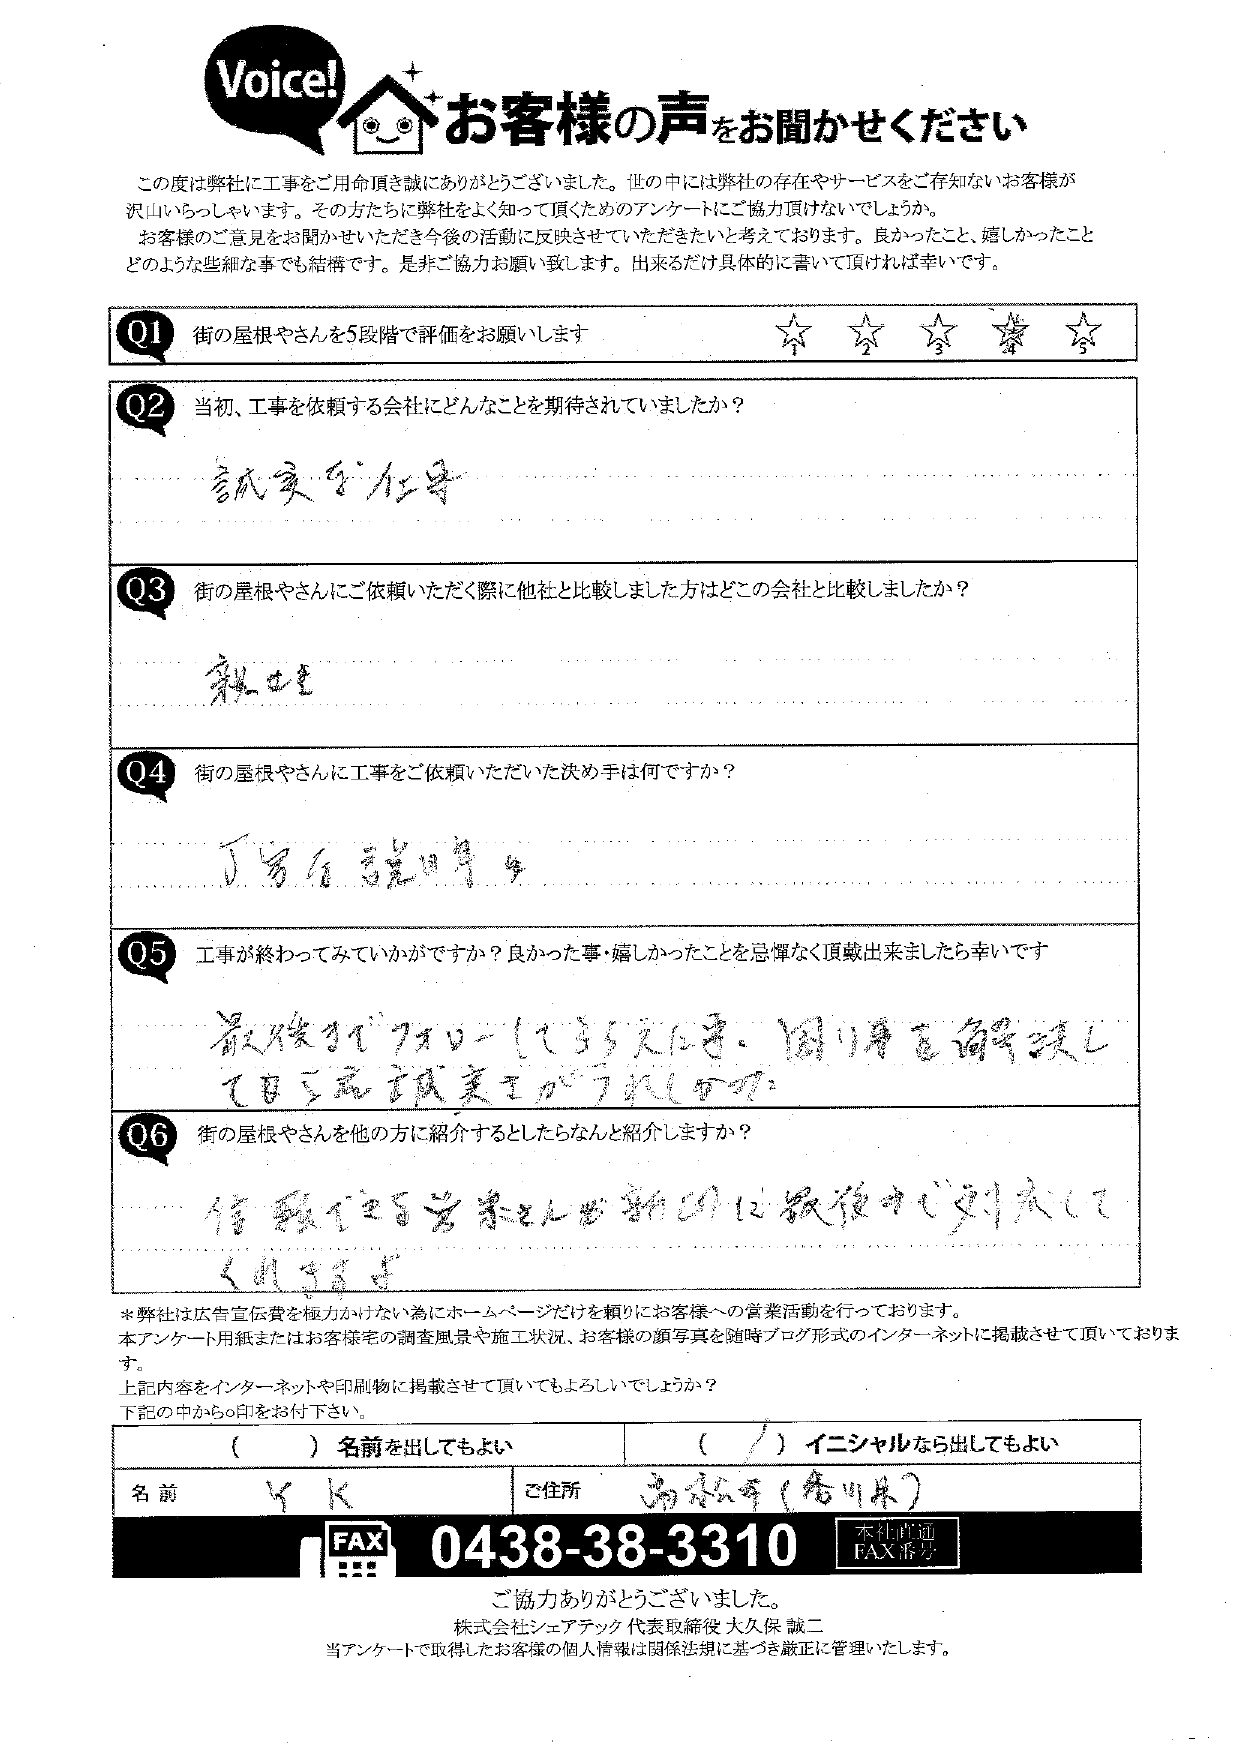 Voice!
お客様の声をお聞かせください
この度は弊社に工事をご用命頂き誠にありがとうございました。世の中には弊社の存在やサービスをご存知ないお客様が
沢山いらっしゃいます。その方たちに弊社をよく知って頂くためのアンケートにご協力頂けないでしょうか。
お客様のご意見をお聞かせいただき今後の活動に反映させていただきたいと考えております。良かったこと、嬉しかったこと
どのような些細な事でも結構です。是非ご協力お願い致します。出来るだけ具体的に書いて頂ければ幸いです。
Q1 街の屋根やさんを5段階で評価をお願いします 1 2 3 4 5
Q2 当初、工事を依頼する会社にどんなことを期待されていましたか？
誠実な仕事
Q3 街の屋根やさんにご依頼いただく際に他社と比較しました方はどこの会社と比較しましたか？
Q4 街の屋根やさんに工事をご依頼いただいた決め手は何ですか？
丁寧な説明
Q5 工事が終わってみていかがですか？良かった事・嬉しかったことを忌憚なく頂戴出来ましたら幸いです
最後までフォローしてもらえた事。困り事を解決し
誠実さがうれしかった
Q6 街の屋根やさんを他の方に紹介するとしたらなんと紹介しますか？
信頼できる営業さんが親切に最後まで対応して
くれますよ
＊弊社は広告宣伝費を極力かけない為にホームページだけを頼りにお客様への営業活動を行っております。
本アンケート用紙またはお客様宅の調査風景や施工状況、お客様の顔写真を随時ブログ形式のインターネットに掲載させて頂いておりま
す。
上記内容をインターネットや印刷物に掲載させて頂いてもよろしいでしょうか？
下記の中から○印をお付下さい。
（　　）名前を出してもよい （ / ）イニシャルなら出してもよい
名前 Y K ご住所 高松市（香川県）
FAX 0438-38-3310 本社直通
FAX番号
ご協力ありがとうございました。
株式会社シェアテック 代表取締役 大久保 誠二
当アンケートで取得したお客様の個人情報は関係法規に基づき厳正に管理いたします。